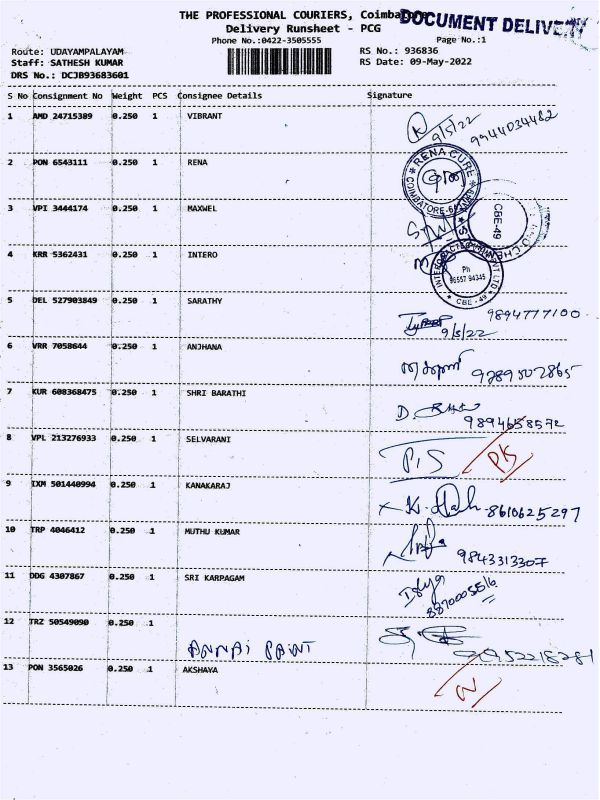 THE PROFESSIONAL COURIERS, Coimbatore
DOCUMENT DELIVERY
Delivery Runsheet - PCG
Phone No.:0422-3505555
Page No.:1
Route: UDAYAMPALAYAM
RS No.: 936836
Staff: SATHESH KUMAR
RS Date: 09-May-2022
DRS No.: DCJB93683601
S No Consignment No Weight PCS Consignee Details Signature
1 AMD 24715389 0.250 1 VIBRANT
9/5/22 9944034482
2 PON 6543111 0.250 1 RENA
RENA CURE
COIMBATORE-
3 VPI 3444174 0.250 1 MAXWEL
CBE-49
4 KRR 5362431 0.250 1 INTERO
Ph
95557 94345
CBE - 49
5 DEL 527903849 0.250 1 SARATHY
9894777100
9/5/22
6 VRR 7058644 0.250 1 ANJHANA
9789507865
7 KUR 608368475 0.250 1 SHRI BARATHI
9894658572
8 VPL 213276933 0.250 1 SELVARANI
P.S
PK
9 IXM 501440994 0.250 1 KANAKARAJ
8610625297
10 TRP 4046412 0.250 1 MUTHU KUMAR
9843313307
11 DDG 4307867 0.250 1 SRI KARPAGAM
8870005516
12 TRZ 50549090 0.250 1
ANNAI PAINT
9952218281
13 PON 3565026 0.250 1 AKSHAYA